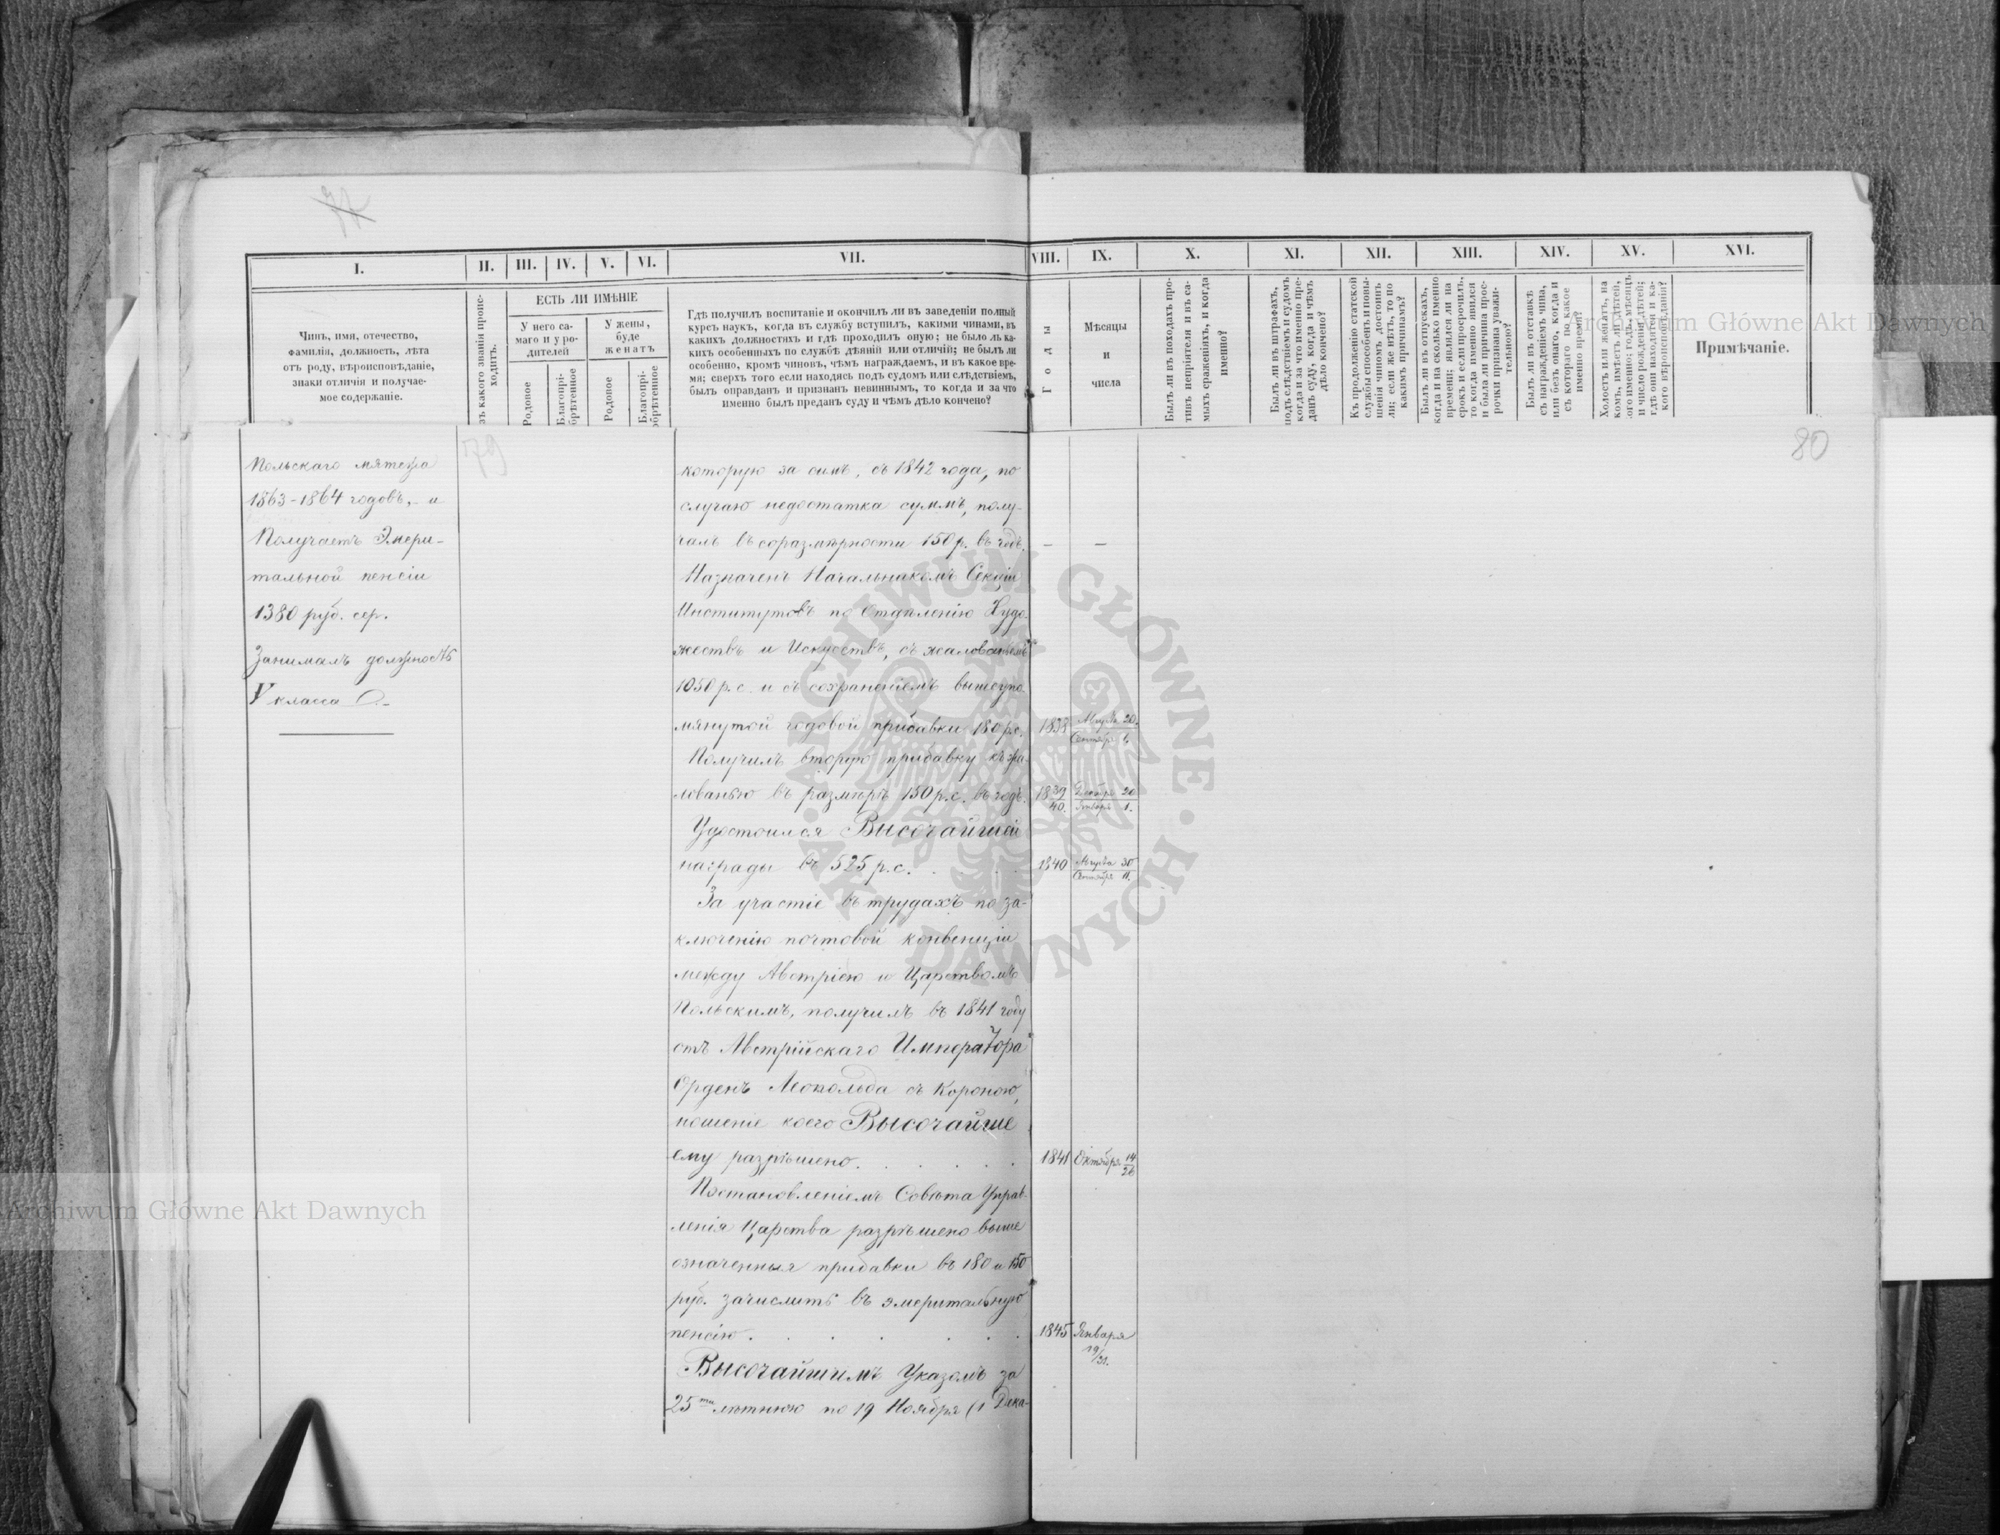 77
I.
II.
III.
IV.
V.
VI.
VII.
VIII.
IX.
X.
XI.
XII.
XIII.
XIV.
XV.
XVI.
Чинъ, имя, отечество,
фамилія, должность, лѣта
отъ роду, вѣроисповѣданіе,
знаки отличія и получае-
мое содержаніе.
зъ какого званія проис-
ходитъ.
ЕСТЬ ЛИ ИМѢНІЕ
У него са-
маго и у ро-
дителей
У жены,
буде
женатъ
Родовое
Благопрі-
обрѣтенное
Родовое
Благопрі-
обрѣтенное
Гдѣ получилъ воспитаніе и окончилъ ли въ заведеніи полный
курсъ наукъ, когда въ службу вступилъ, какими чинами, въ
какихъ должностяхъ и гдѣ проходилъ оную; не было ль ка-
кихъ особенныхъ по службѣ дѣяній или отличій; не былъ ли
особенно, кромѣ чиновъ, чѣмъ награждаемъ, и въ какое вре-
мя; сверхъ того если находясь подъ судомъ или слѣдствіемъ,
былъ оправданъ и признанъ невиннымъ, то когда и за что
именно былъ преданъ суду и чѣмъ дѣло кончено?
Годы
Мѣсяцы
и
числа
Былъ ли въ походахъ про-
тивъ непріятеля и въ са-
мыхъ сраженіяхъ, и когда
именно?
Былъ ли въ штрафахъ,
подъ слѣдствіемъ и судомъ
когда и за что именно пре-
данъ суду, когда и чѣмъ
дѣло кончено?
Къ продолженію статской
службы способенъ и повы-
шенія чиномъ достоинъ
ли; если же нѣтъ, то по
какимъ причинамъ?
Былъ ли въ отпускахъ,
когда и на сколько именно
времени; являлся ли на
срокъ и если просрочилъ,
то когда именно явился
и была ли причина прос-
рочки признана уважи-
тельною?
Былъ ли въ отставкѣ
съ награжденіемъ чина,
или безъ онаго, когда и
съ котораго по какое
именно время?
Холостъ или женатъ, на
комъ, имѣетъ ли дѣтей,
кого именно; годъ, мѣсяцъ
и число рожденія дѣтей;
гдѣ они находятся и ка-
кого вѣроисповѣданія?
Примѣчаніе.
79
80
Польскаго мятежа
1863-1864 годовъ, и
Получаетъ Эмери-
тальной пенсіи
1380 руб. сер.
Занималъ должность
V класса
которую за симъ, съ 1842 года, по
случаю недостатка суммъ, полу-
чалъ въ соразмѣрности 150 р. въ годъ.
Назначенъ Начальникомъ Секціи
Институтовъ по Отдѣленію Худо-
жествъ и Искуствъ, съ жалованьемъ
1050 р. с. и съ сохраненіемъ вышеупо-
мянутой годовой прибавки 180 р. с.
1838 Августа 20. Сентябр
Получилъ вторую прибавку къ жа-
лованью въ размѣрѣ 150 р. с. въ годъ.
1839/40. Декабр 20 Январ 1.
Удостоился Высочайшей
награды въ 525 р. с. . . . .
1840 Августа 30 Сентябр 11.
За участіе въ трудахъ по за-
ключенію почтовой конвенціи
между Австріею и Царствомъ
Польскимъ, получилъ въ 1841 году
отъ Австрійскаго Императора
Орденъ Леопольда съ Короною,
ношеніе коего Высочайше
ему разрѣшено. . . . . .
1841 Октября 14/26
Постановленіемъ Совѣта Управ-
ленія Царства разрѣшено выше
означенныя прибавки въ 180 и 150
руб. зачислить въ эмеритальную
пенсію . . . . . . .
1845 Января
19/31.
Высочайшимъ Указомъ за
25ти лѣтнюю по 19 Ноября (1 Дека-
Archiwum Główne Akt Dawnych
Archiwum Główne Akt Dawnych
ARCHIWUM GŁÓWNE
AKT DAWNYCH